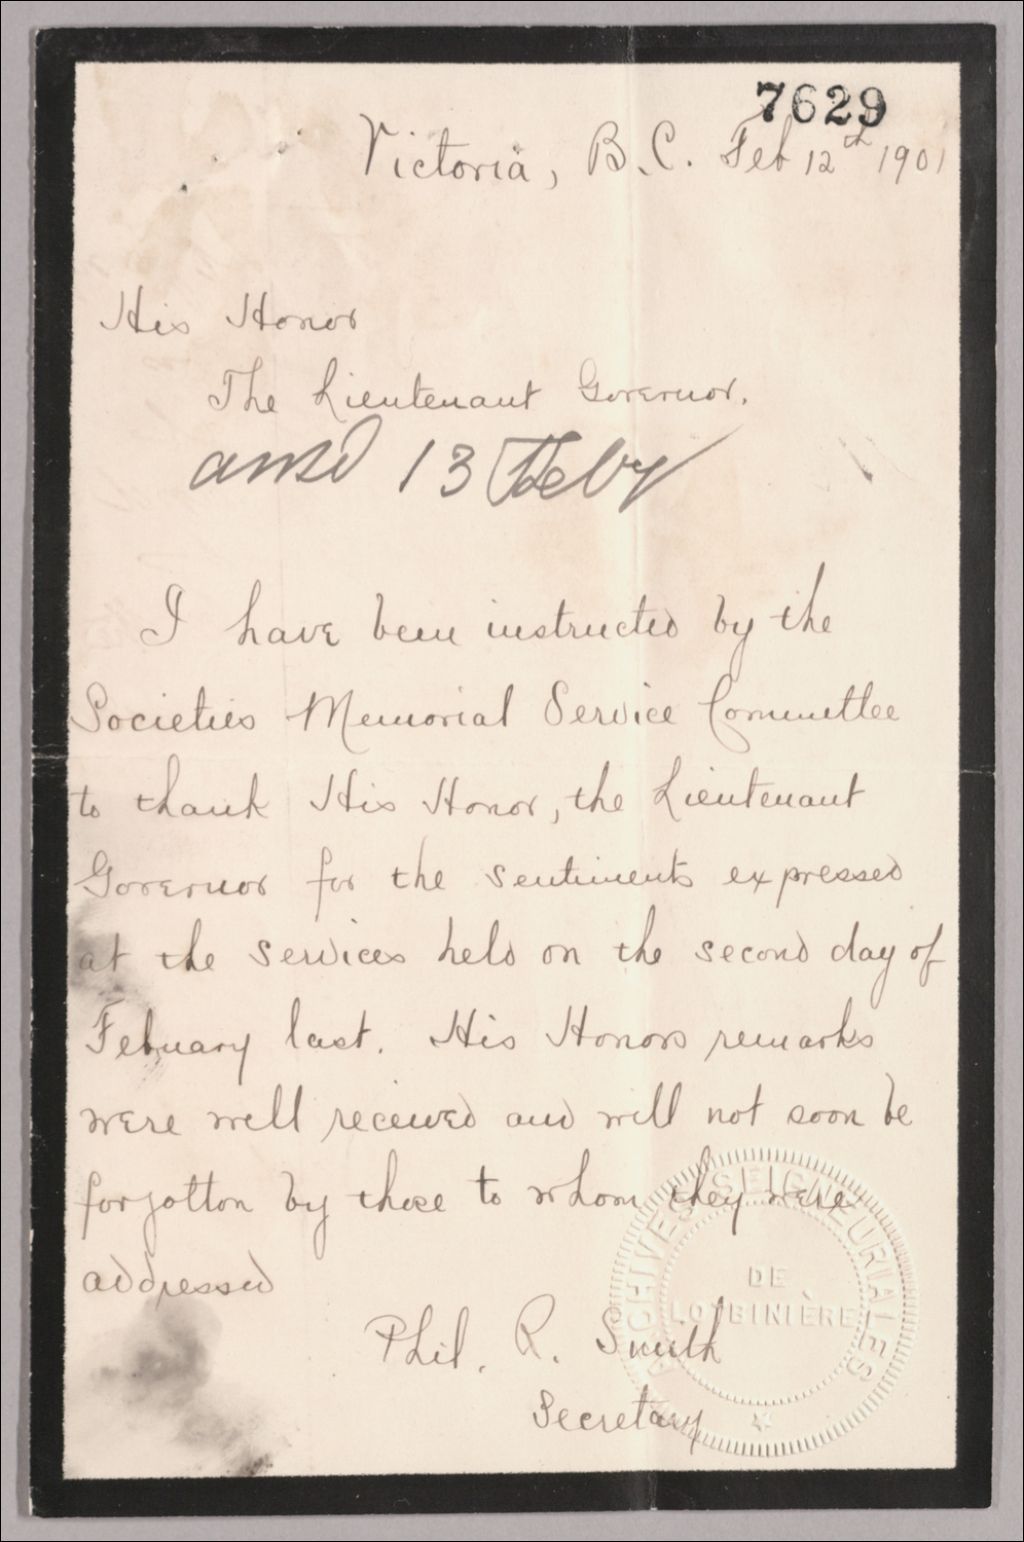 7629
Victoria, B.C. Feb 12th 1901
His Honor
The Lieutenant Governor.
ansd 13 Feby
I have been instructed by the
Societies Memorial Service Committee
to thank His Honor, the Lieutenant
Governor for the sentiments expressed
at the services held on the second day of
Febuary last. His Honors remarks
were well received and will not soon be
forgotton by those to whom they were
addressed
Phil. R. Smith
Secretary
ARCHIVES SEIGNEURIALES
DE
LOTBINIÈRE